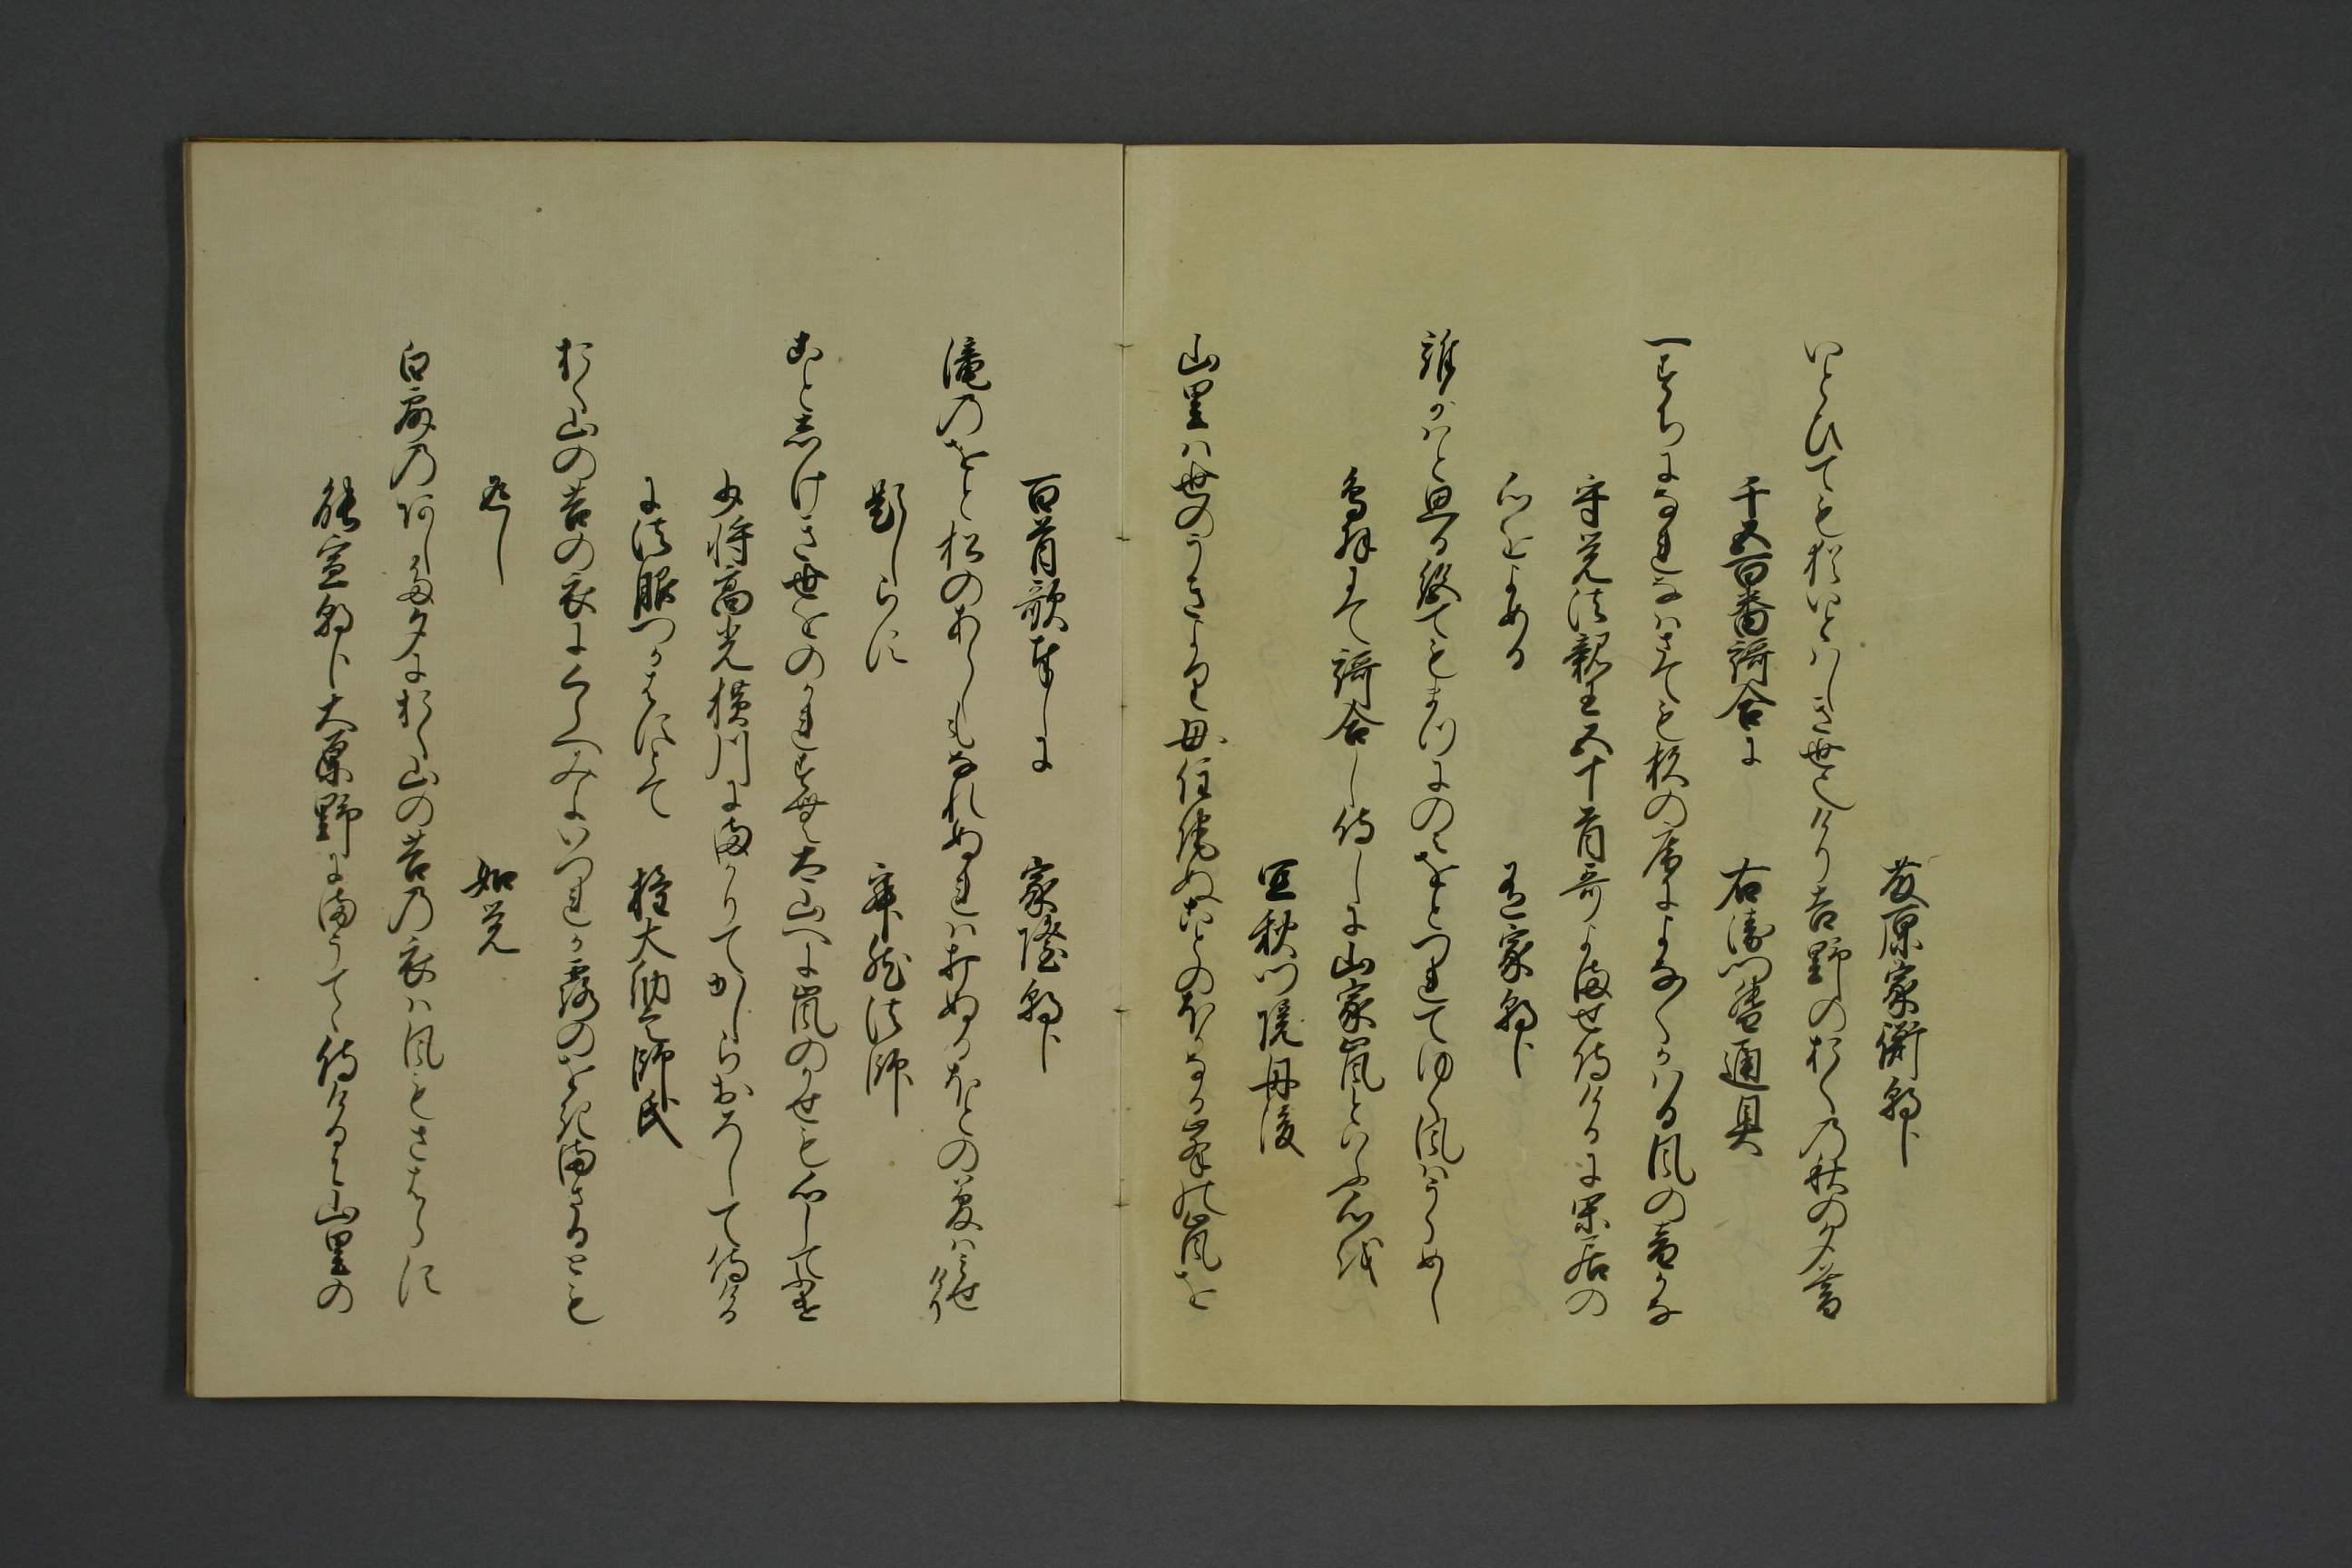 藤原家衡朝臣
いとひても猶いとはしき世也けり吉野のおくの秋の夕暮
千五百番謌合に
右衛門督通具
一すちになれなはさても杉の庵によな〱かはる風の音かな
守覚法親王五十首哥よませ侍けるに閑居の
心をよめる
有家朝臣
誰かはと思ひ絶てもまつにのみをとつれてゆく風はうらめし
鳥羽にて謌合し侍しに山家嵐といふ心を
宜秋門院丹後
山里は世のうきよりも住侘ぬことのほかなる峯の嵐を
百首歌奉しに
家隆朝臣
滝のをと松のあらしもなれぬれは打ぬるほとの夢はみせけり
題しらす
寂然法師
ことしけき世をのかれにしみ山へに嵐のかせも心して吹
少将高光横川にまかりてかしらおろして侍ける
に法服つかはすとて
権大納言師氏
おく山の苔の衣にくらへみよいつれか露のをきまさるとも
返し
如覚
白露のあした夕におく山の苔の衣は風もさはらす
能宣朝臣大原野にまうてゝ侍けるに山里の